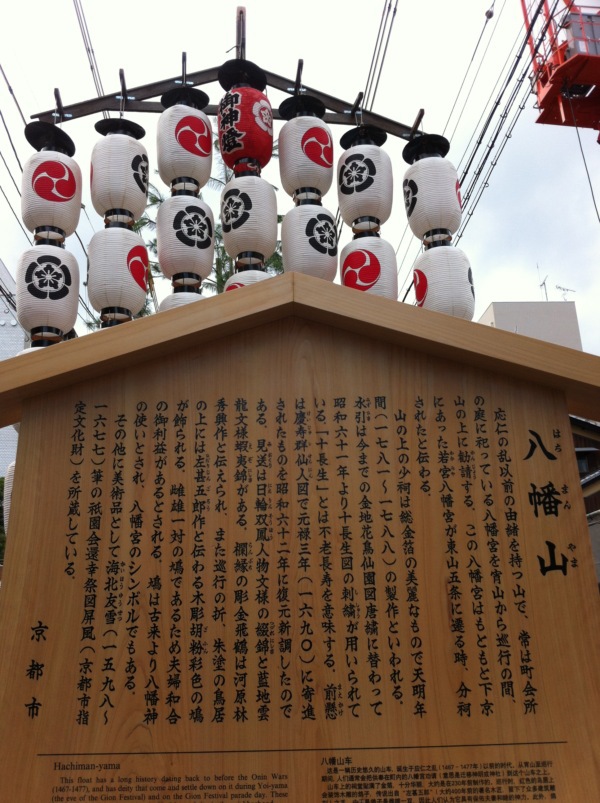 御神燈
八幡山
はちまんやま
応仁の乱以前の由緒を持つ山で、常は町会所
の庭に祀っている八幡宮を宵山から巡行の間、
山の上に勧請する。この八幡宮はもともと下京
にあった若宮八幡宮が東山五条に遷る時、分祠
されたと伝わる。
山の上の少祠は総金箔の美麗なもので天明年
間(一七八一〜一七八八)の製作といわれる。
水引は今までの金地花鳥仙園図唐繍に替わって
昭和六十一年より十長生図の刺繍が用いられて
いる。「十長生」とは不老長寿を意味する。前懸
は慶寿群仙人図で元禄三年(一六九〇)に寄進
されたものを昭和六十二年に復元新調したので
ある。見送は日輪双鳳人物文様の綴錦と藍地雲
龍文様蝦夷錦がある。欄縁の彫金飛鶴は河原林
秀興作と伝えられ、また巡行の折、朱塗の鳥居
の上には左甚五郎作と伝わる木彫胡粉彩色の鳩
が飾られる。雌雄一対の鳩であるため夫婦和合
の御利益があるとされる。鳩は古来より八幡神
の使いとされ、八幡宮のシンボルでもある。
その他に美術品として海北友雪(一五九八〜
一六七七)筆の祇園会還幸祭図屏風(京都市指
定文化財)を所蔵している。
京都市
Hachiman-yama
This float has a long history dating back to before the Onin Wars
(1467-1477), and has deity that come and settle down on it during Yoi-yama
(the eve of the Gion Festival) and on the Gion Festival parade day. These
八幡山车